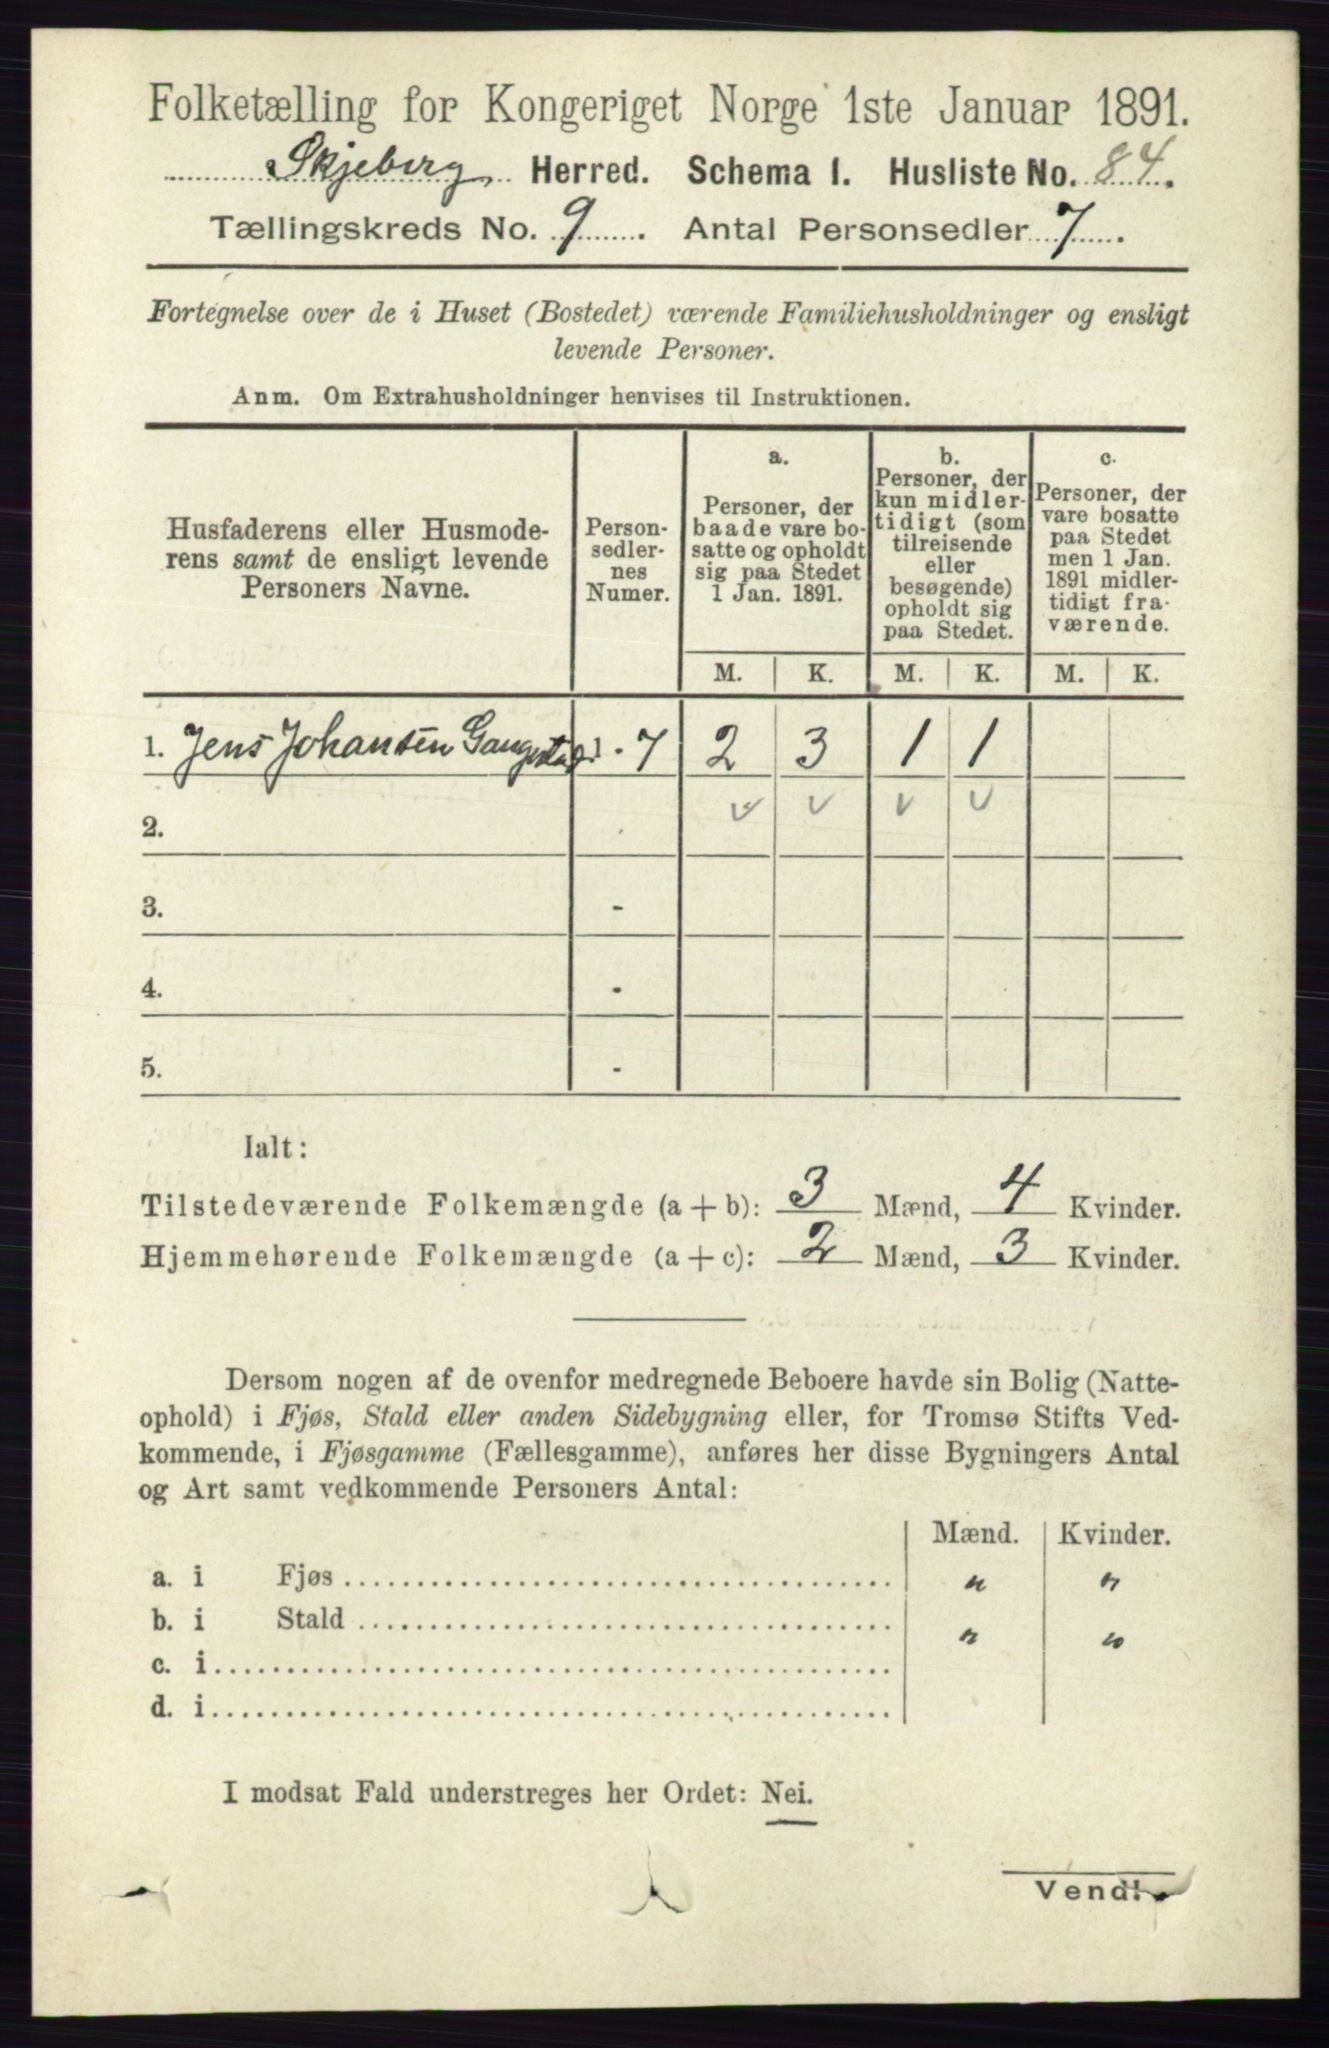 Folketælling for Kongeriget Norge 1ste Januar 1891.
Skjeberg Herred. Schema 1. Husliste No. 84.
Tællingskreds No. 9. Antal Personsedler 7.
Fortegnelse over de i Huset (Bostedet) værende Familiehusholdninger og ensligt
levende Personer.
Anm. Om Extrahusholdninger henvises til Instruktionen.
Husfaderens eller Husmode-
rens samt de ensligt levende
Personers Navne.
Person-
sedler-
nes
Numer.
a.
Personer, der
baade vare bo-
satte og opholdt
sig paa Stedet
1 Jan. 1891.
b.
Personer, der
kun midler-
tidigt (som
tilreisende
eller
besøgende)
opholdt sig
paa Stedet.
c.
Personer, der
vare bosatte
paa Stedet
men 1 Jan.
1891 midler-
tidigt fra-
værende.
M. K. M. K. M. K.
1. Jens Johansen Gangestad 1 - 7 2 3 1 1
2.
3. -
4. -
5. -
Ialt:
Tilstedeværende Folkemængde (a + b): 3 Mænd, 4 Kvinder.
Hjemmehørende Folkemængde (a + c): 2 Mænd, 3 Kvinder.
Dersom nogen af de ovenfor medregnede Beboere havde sin Bolig (Natte-
ophold) i Fjøs, Stald eller anden Sidebygning eller, for Tromsø Stifts Ved-
kommende, i Fjøsgamme (Fællesgamme), anføres her disse Bygningers Antal
og Art samt vedkommende Personers Antal:
Mænd. Kvinder.
a. i Fjøs " "
b. i Stald " "
c. i
d. i
I modsat Fald understreges her Ordet: Nei.
Vend!